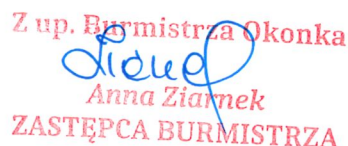 Z up. Burmistrza Okonka
Anna Ziarnek
ZASTĘPCA BURMISTRZA